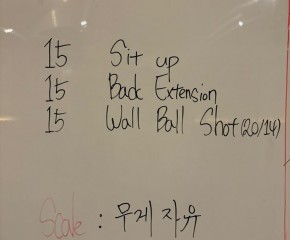 15 Sit up
15 Back Extension
15 Wall Ball Shot (20/14)
Scale : 무게 자유